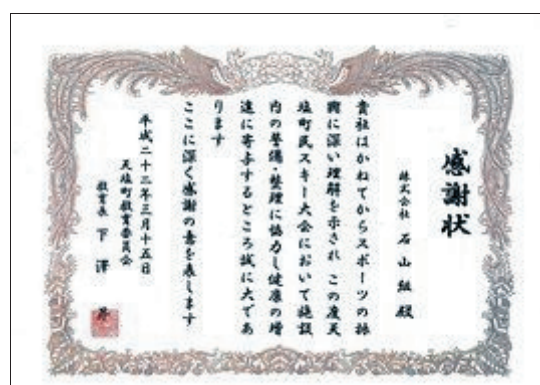 感謝状
株式会社 石山組 殿
貴社はかねてからスポーツの振
興に深い理解を示され この度天
塩町民スキー大会において施設
内の警備・整理に協力し健康の増
進に寄与するところ誠に大であ
ります
ここに深く感謝の意を表します
平成二十三年三月十五日
天塩町教育委員会
教育長 下澤